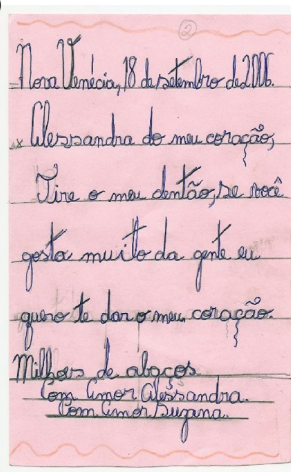 2
Nova Venécia, 18 de setembro de 2006.
Alessandra do meu coração,
Tire o meu dentão, se você
gosta muito da gente eu
quero te dar o meu coração.
Milhoes de abaços
Com Amor Alessandra.
Com Amor Suzana.